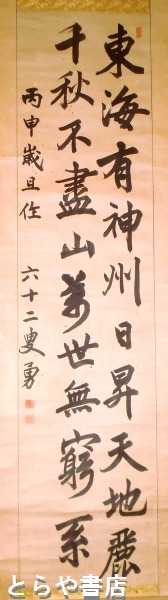 東海有神州日昇天地麗
千秋不盡山萬世無窮系
丙申歳旦作 六十二叟勇
とらや書店